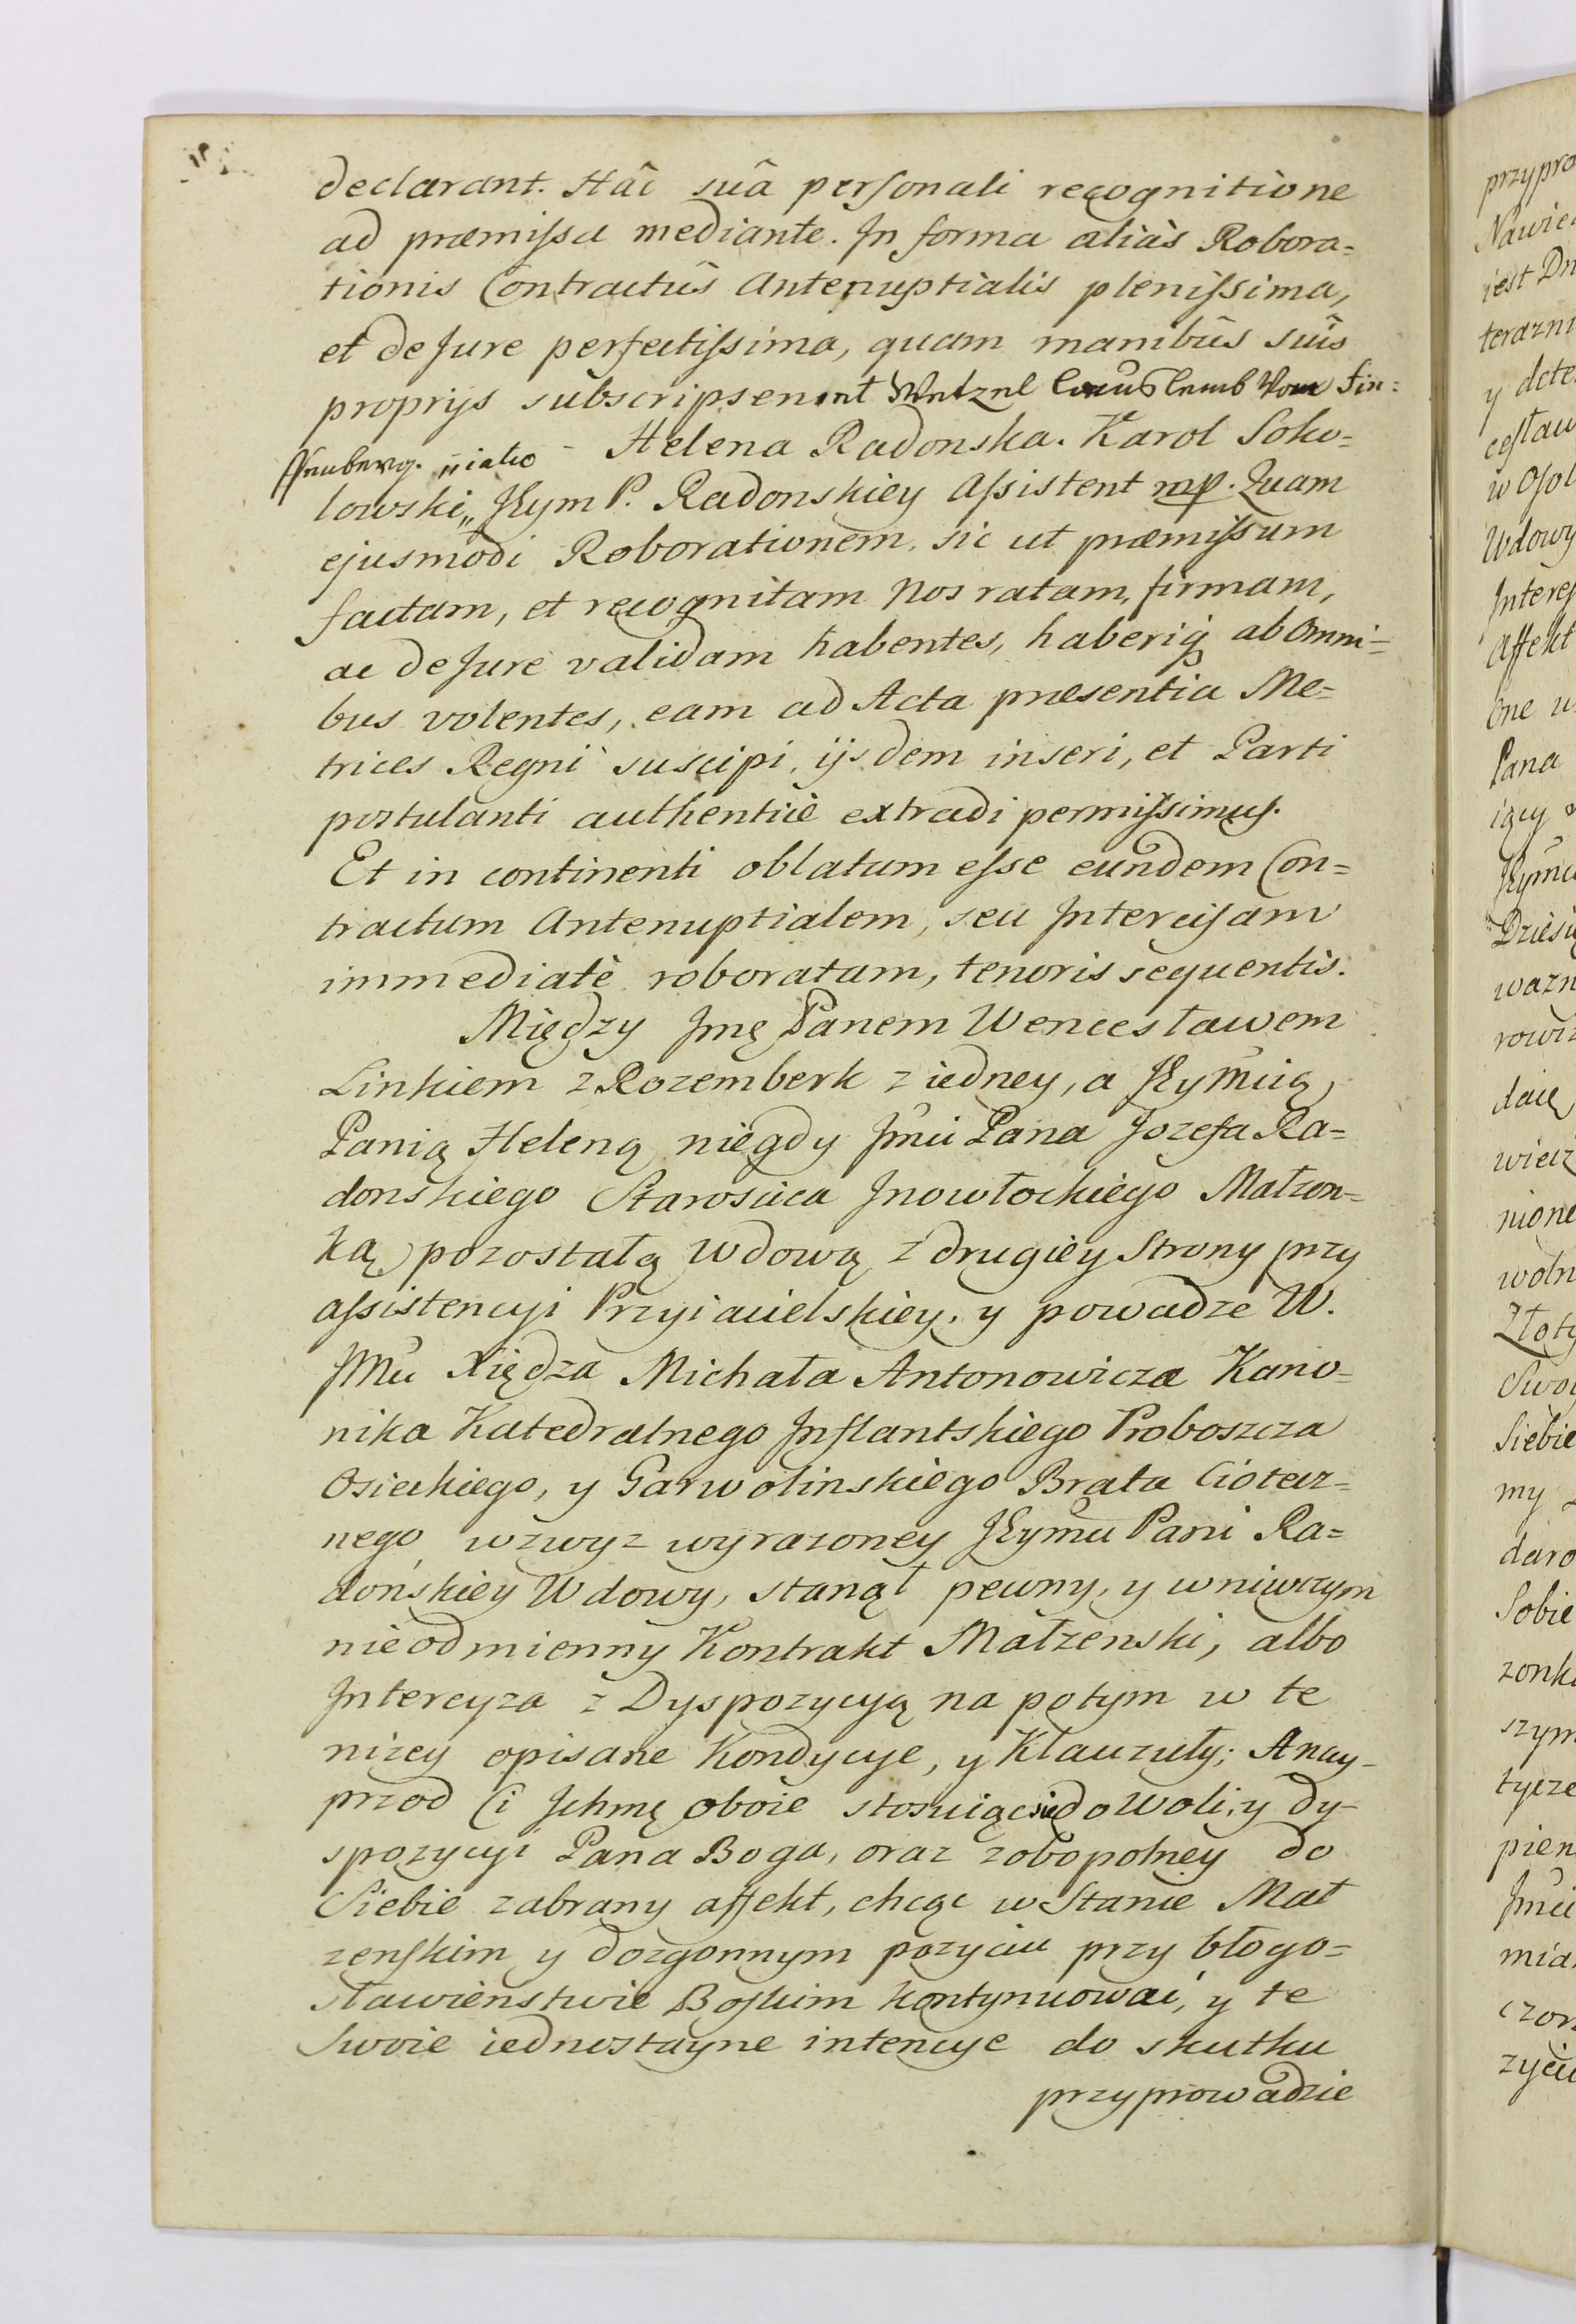 declarant. Hâc suâ personali recognitione
ad præmissa mediante. In forma aliàs Robora=
tionis Contractûs Antenuptialis plenissima,
et de Jure perfectissima, quam manibûs suis
proprijs subscripserunt Wentzel
Helena Radonska. Karol Soko=
lowski„ JEym P. Radonskiey Assistent mp. Quam
ejusmodi Roborationem, sic ut præmissum
factam, et recognitam Nos ratam, firmam,
ac de Jure validam habentes, haberiq ab Omni=
bus volentes, eam ad Acta præsentia Me=
trices Regni suscipi, ijsdem inseri, et Parti
postulanti authenticè extradi permissimus.
Et in continenti oblatum esse eundem Con=
tractum Antenuptialem, seu Intercisam
immediatè roboratam, tenoris sequentis.
Między Jmę Panem Wencesławem
Linkiem z Rozemberk z iedney, a JEymcią
Panią Heleną niegdy Jmci Pana Jozefa Ra=
donskiego Starościca Inowłockiego Małzon=
ką pozostałą Wdową z drugiey Strony przy
assistencyi Przyiacielskiey, y powadze W.
JMci Xiędza Michała Antonowicza Kano=
nika Katedralnego Inflantskiego Proboszcza
Osieckiego, y Garwolinskiego Brata Ciotecz=
nego wzwyz wyrazoney JEymci Pani Ra=
dońskiey Wdowy, stanął pewny, y wniwczym
nieodmienny Kontrakt Małzenski, albo
Intercyza z Dyspozycyą na potym w te
nizey opisane Kondycye, y Klauzuły; A nay-
przod Ci Ichmę oboie stosuiąc się do Woli, y dy-
spozycyi Pana Boga, oraz zobopolney do
Siebie zabrany affekt, chcąc w Stanie Mał
zenskim y dozgonnym pozyciu przy błogo=
sławieństwie Boskim kontynuować, y te
Swoie iednostayne intencye do skutku
przyprowadzic